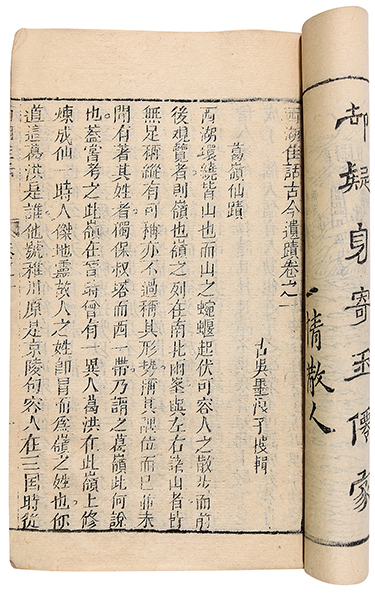 却疑身寄玉僊家
一情散人
西湖佳話古今遺蹟卷之一
古吳墨浪子搜輯
葛嶺仙蹟
西湖環繞皆山也而山之蜿蜒起伏可容人之散步而前
後觀覽者則嶺也嶺之列在南北兩峯與左右諸山者皆
無足稱縱有可稱亦不過稱其形勢稱其隅位而已並未
聞有著其姓者獨保叔塔而西一帶乃謂之葛嶺此何說
也蓋嘗考之此嶺在晉時曾有一異人葛洪在此嶺上修
煉成仙一時人傑地靈故人之姓即冒而為嶺之姓也你
道這葛洪是誰他號稚川原是京陵句容人在三国時從